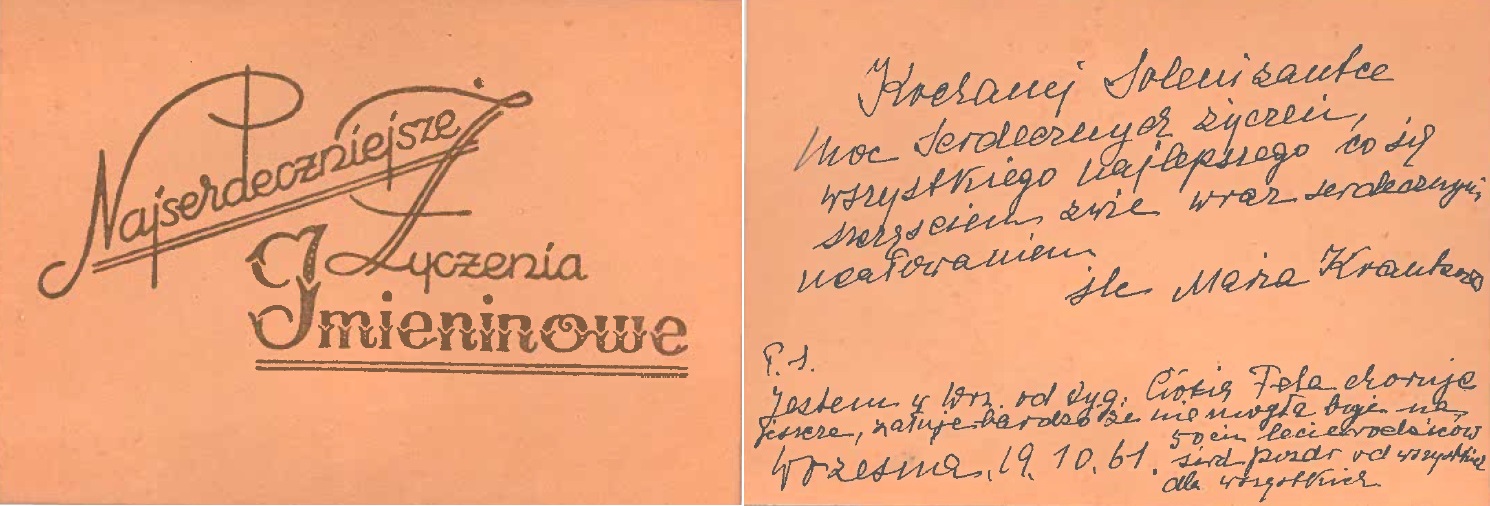 Najserdeczniejsze
Życzenia
Imieninowe
Kochanej Solenizantce
moc serdecznych życzeń,
wszystkiego najlepszego co się
szczęściem zwie wraz serdecznym
ucałowaniem
śle Maria
P.S.
Jestem w Wrz. od tyg. Ciocia Fela choruje
jeszcze, żałuje bardzo że nie mogła być na
50cio lecie rodziców
Września, 19.10.61. serd. pozdr. od wszystkich
dla wszystkich.